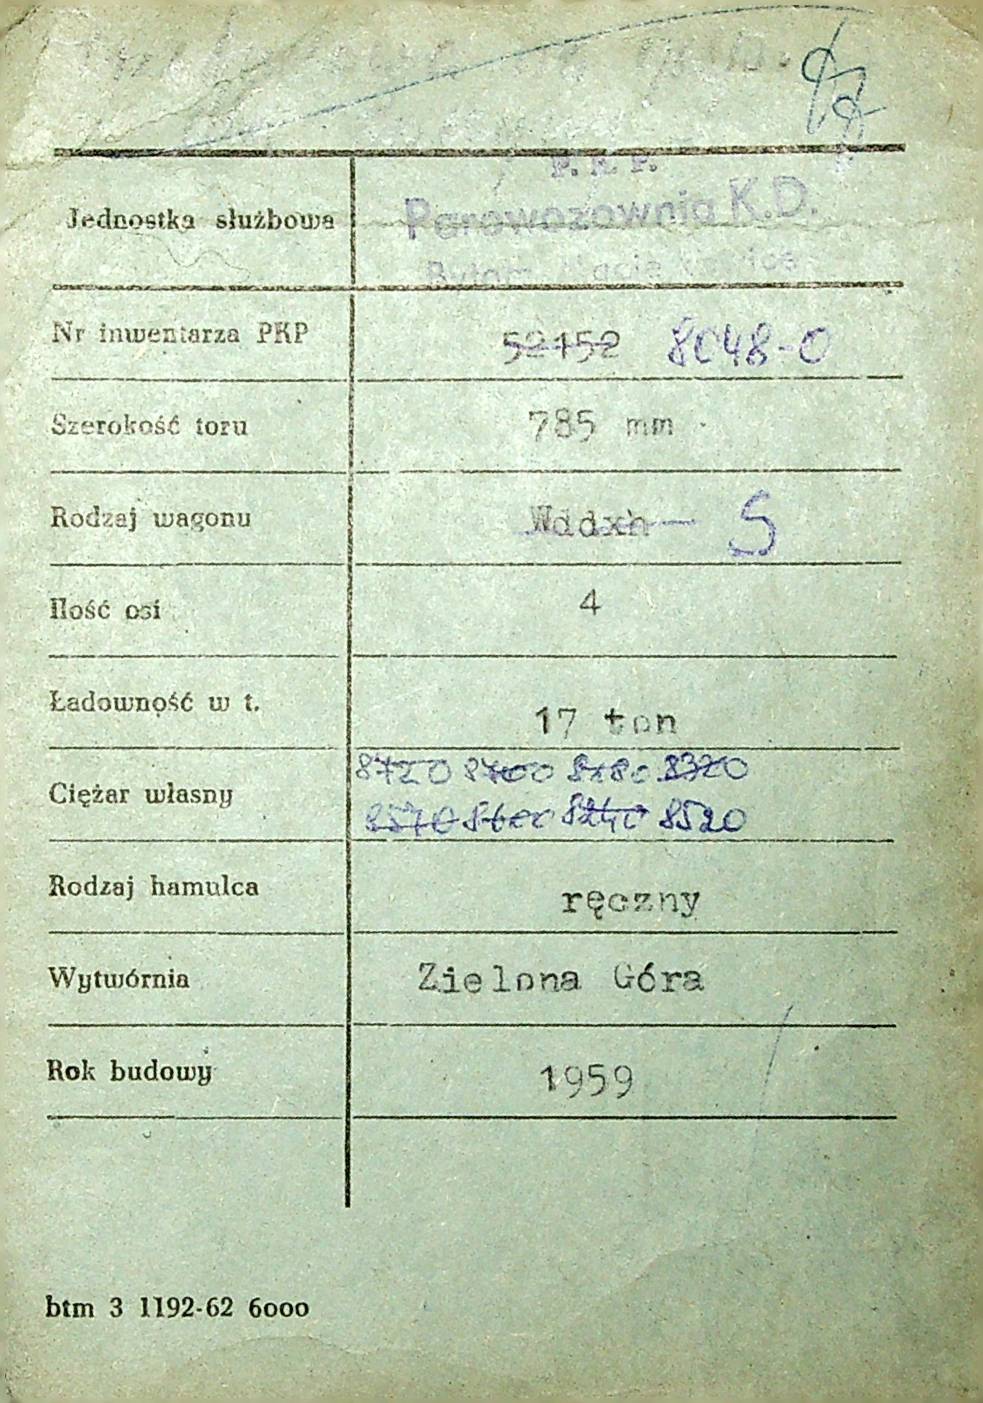 P. K. P.
Jednostka służbowa Parowozownia K.D.
Bytom
Nr inwentarza PKP 52152 8048-0
Szerokość toru 785 mm
Rodzaj wagonu Wddxh S
Ilość osi 4
Ładowność w t. 17 ton
8720 8700 8280 8320
Ciężar własny
8570 8600 8240 8520
Rodzaj hamulca ręczny
Wytwórnia Zielona Góra
Rok budowy 1959
btm 3 1192-62 6000